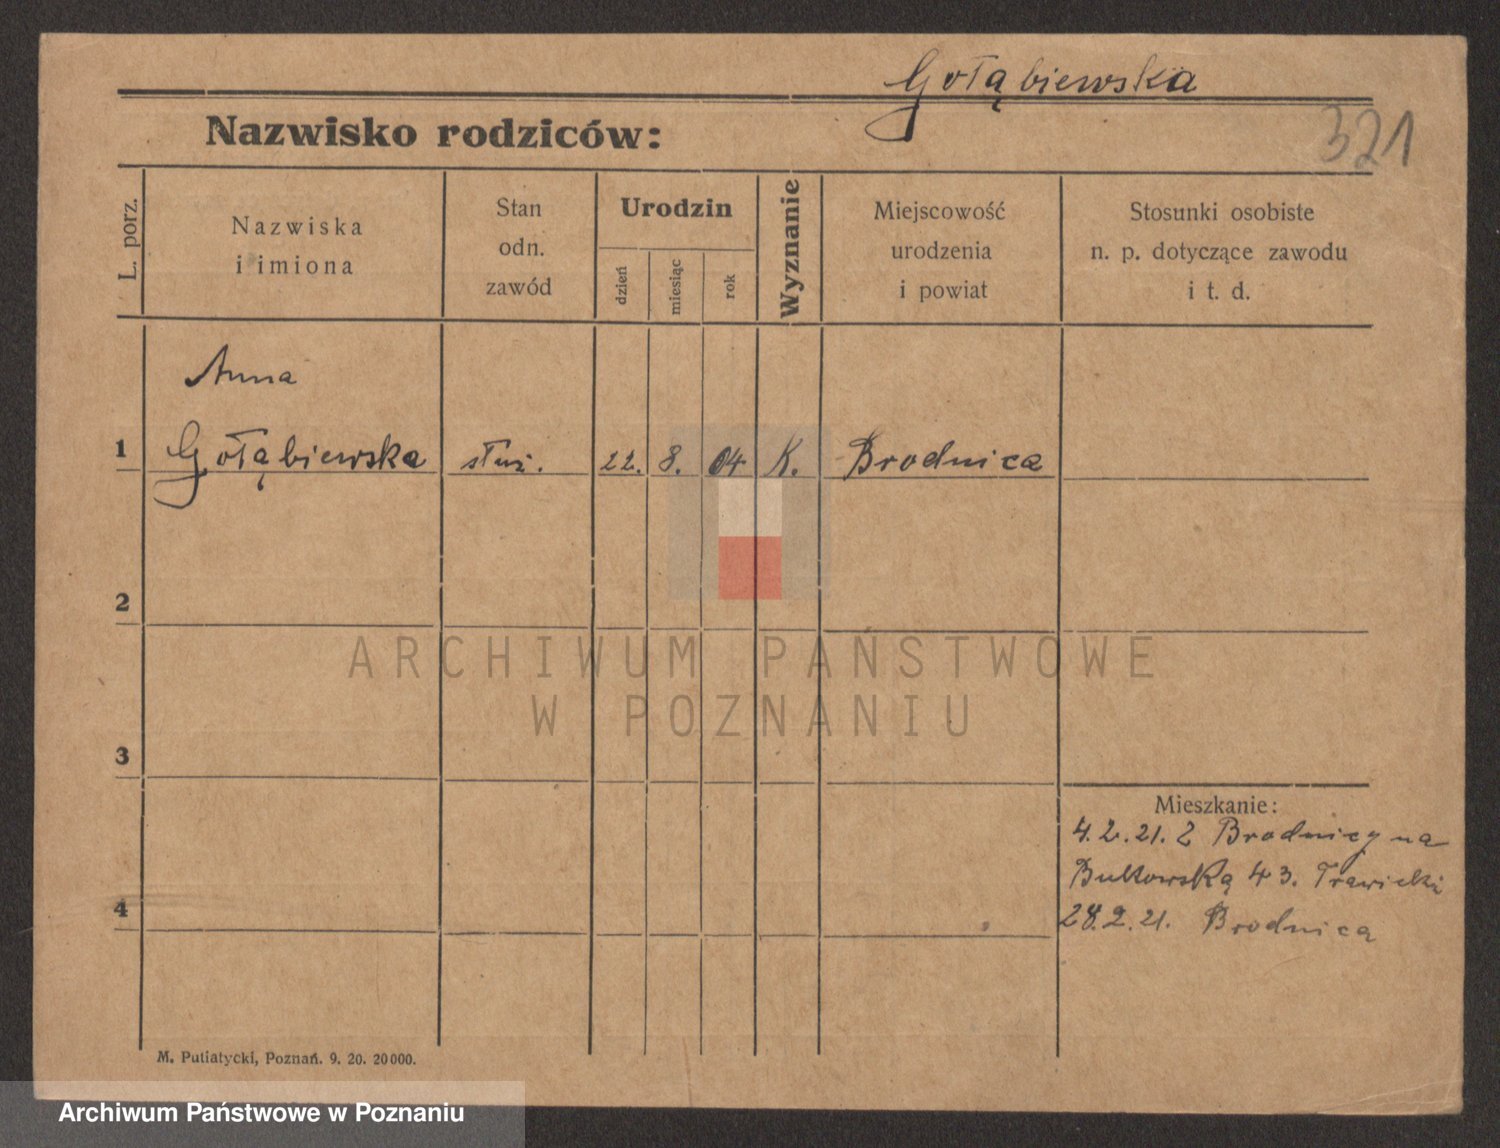 Gołąbiewska
321
Nazwisko rodziców:
L. porz.
Nazwiska
i imiona
Stan
odn.
zawód
Urodzin
dzień
miesiąc
rok
Wyznanie
Miejscowość
urodzenia
i powiat
Stosunki osobiste
n. p. dotyczące zawodu
i t. d.
Anna
1 Gołąbiewska służ. 22. 8. 04 K. Brodnica
2
ARCHIWUM PAŃSTWOWE
W POZNANIU
3
Mieszkanie:
4.2.21. Z Brodnicy na
Bukowską 43.
4
28.2.21. Brodnica
M. Putiatycki, Poznań. 9. 20. 20000.
Archiwum Państwowe w Poznaniu